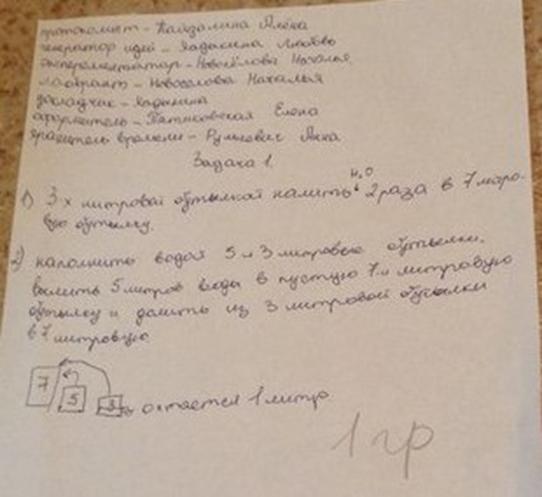 протоколист - Кайзалина Алена
генератор идей - Ладанина Любовь
эксперементатор - Новосёлова Наталья
лаборант - Новоселова Наталья
докладчик - Ладанина
оформитель - Пятковская Елена
хранитель времени - Рулевич Анна
Задача 1.
1) 3х литровой бутылкой налить H2O 2 раза в 7 литро-
вую бутылку.
2) наполнить водой 5 и 3 литровые бутылки.
вылить 5 литров воды в пустую 7и литровую
бутылку и долить из 3 литровой бутылки
в 7 литровую
7 5 3 остается 1 литр.
1 гр